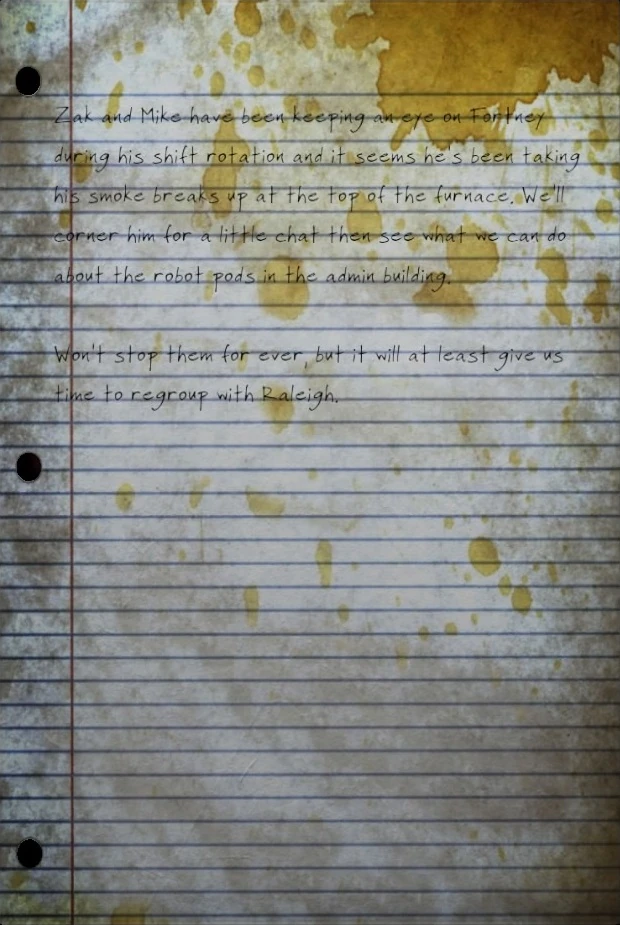 Zak and Mike have been keeping an eye on Fortney
during his shift rotation and it seems he's been taking
his smoke breaks up at the top of the furnace. We'll
corner him for a little chat then see what we can do
about the robot pods in the admin building.
Won't stop them for ever, but it will at least give us
time to regroup with Raleigh.